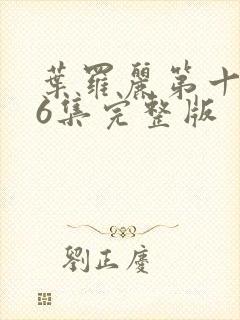 葉羅麗第十
6集完整版
劉正慶